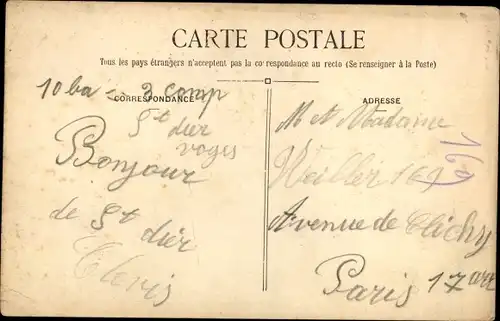 CARTE POSTALE
Tous les pays étrangers n'acceptent pas la correspondance au recto (Se renseigner à la Poste)
CORRESPONDANCE
10 ba -- 3 comp
St dier
voges
Bonjour
de St dier
ADRESSE
M et Madame
169
Avenue de Clichy
Paris 17 arr